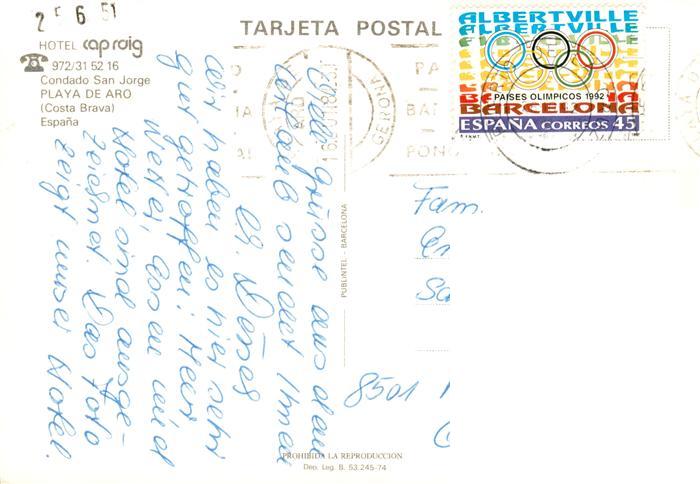 2 6 51
TARJETA POSTAL
HOTEL cap roig
972/31 52 16
Condado San Jorge
PLAYA DE ARO
(Costa Brava)
España
ALBERTVILLE
ALBERTVILLE
PAISES OLIMPICOS 1992
BARCELONA
ESPAÑA CORREOS 45
GERONA
Viele Grüsse aus dem
Urlaub sendet Ihnen
Wir haben es hier sehr
gut getroffen: Meer
Wetter, Essen und
Hotel sind ausge-
zeichnet. Das Foto
zeigt unser Hotel.
PUBLINTEL - BARCELONA
Fam.
8501
PROHIBIDA LA REPRODUCCION
Dep. Leg. B. 53.245-74